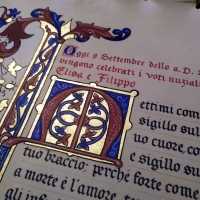 Oggi 8 Settembre dello a.D.
vengono celebrati i voti nuzial
Elisa e Filippo
Metti mi com
sigillo sul
uo cuore, co
e sigillo su
tuo braccio; perché forte come
a morte è l'amore, te
gli inf